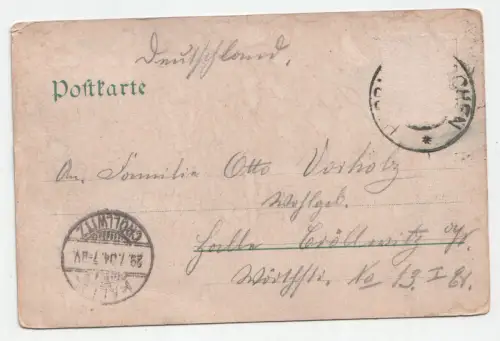 Deutschland.
Postkarte
CHEN
An Familie Otto Vorholz
Wohlgeb.
Halle Cröllwitz a/S.
Wörthstr. No 13 I Et.
CRÖLLWITZ
29.1.04.7-8V.